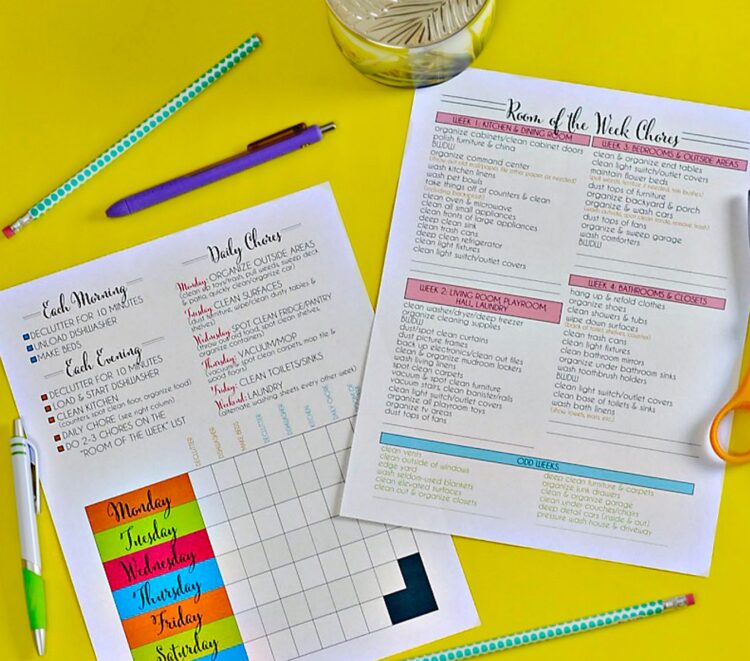 Each Morning
DECLUTTER FOR 10 MINUTES
UNLOAD DISHWASHER
MAKE BEDS
Each Evening
DECLUTTER FOR 10 MINUTES
LOAD & START DISHWASHER
CLEAN KITCHEN
(counters, spot clean floor, organize food)
DAILY CHORE (see right column)
DO 2-3 CHORES ON THE
"ROOM OF THE WEEK" LIST
Daily Chores
Monday: ORGANIZE OUTSIDE AREAS
(clean up toys/trash, pull weeds, sweep deck
& patio, quickly clean/organize car)
Tuesday: CLEAN SURFACES
(dust furniture, wipe/clean dusty tables &
shelves)
Wednesday: SPOT CLEAN FRIDGE/PANTRY
(throw out old food, spot clean shelves,
organize containers)
Thursday: VACUUM/MOP
(vacuum & spot clean carpets, mop tile &
wood floors)
Friday: CLEAN TOILETS/SINKS
Weekend: LAUNDRY
(alternate washing sheets every other week)
DECLUTTER
DISHWASHER
MAKE BEDS
DECLUTTER
DISHWASHER
KITCHEN
DAILY CHORE
Monday
Tuesday
Wednesday
Thursday
Friday
Saturday
Room of the Week Chores
WEEK 1: KITCHEN & DINING ROOM
organize cabinets/clean cabinet doors
polish furniture & china
BWDW
organize command center
wash kitchen linens
wash pet bowls
take things off of counters & clean
(including backsplash)
clean oven & microwave
clean all small appliances
clean fronts of large appliances
deep clean sink
clean trash cans
deep clean refrigerator
clean light fixtures
clean light switch/outlet covers
WEEK 2: LIVING ROOM, PLAYROOM,
HALL, LAUNDRY
clean washer/dryer/deep freezer
organize cleaning supplies
BWDW
dust/spot clean curtains
dust picture frames
back up electronics/clean out files
clean & organize mudroom lockers
wash living linens
spot clean carpets
vacuum & spot clean furniture
vacuum stairs, clean banister/rails
clean light switch/outlet covers
organize all playroom toys
organize tv areas
dust tops of fans
WEEK 3: BEDROOMS & OUTSIDE AREAS
clean & organize end tables
clean light switch/outlet covers
maintain flower beds
dust tops of furniture
organize backyard & porch
organize & wash cars
dust tops of fans
organize & sweep garage
wash comforters
BWDW
WEEK 4: BATHROOMS & CLOSETS
hang up & refold clothes
organize shoes
clean showers & tubs
wipe down surfaces
(back of toilet, shelves, counter)
clean trash cans
clean light fixtures
clean bathroom mirrors
organize under bathroom sink
wash toothbrush holders
BWDW
clean light switch/outlet covers
clean base of toilets & sinks
wash bath linens
ODD WEEKS
clean vents
clean outside of windows
edge yard
wash seldom-used blankets
clean elevated surfaces
clean out & organize closets
deep clean furniture & carpets
organize junk drawers
clean & organize garage
clean under couches/chairs
deep detail cars (inside & out)
pressure wash house & driveway